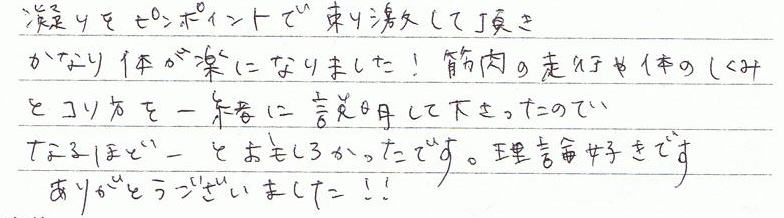 凝りをピンポイントで刺激して頂き
かなり体が楽になりました！筋肉の走行や体のしくみ
とコリ方を一緒に説明して下さったので
なるほどーとおもしろかったです。理論好きです
ありがとうございました!!